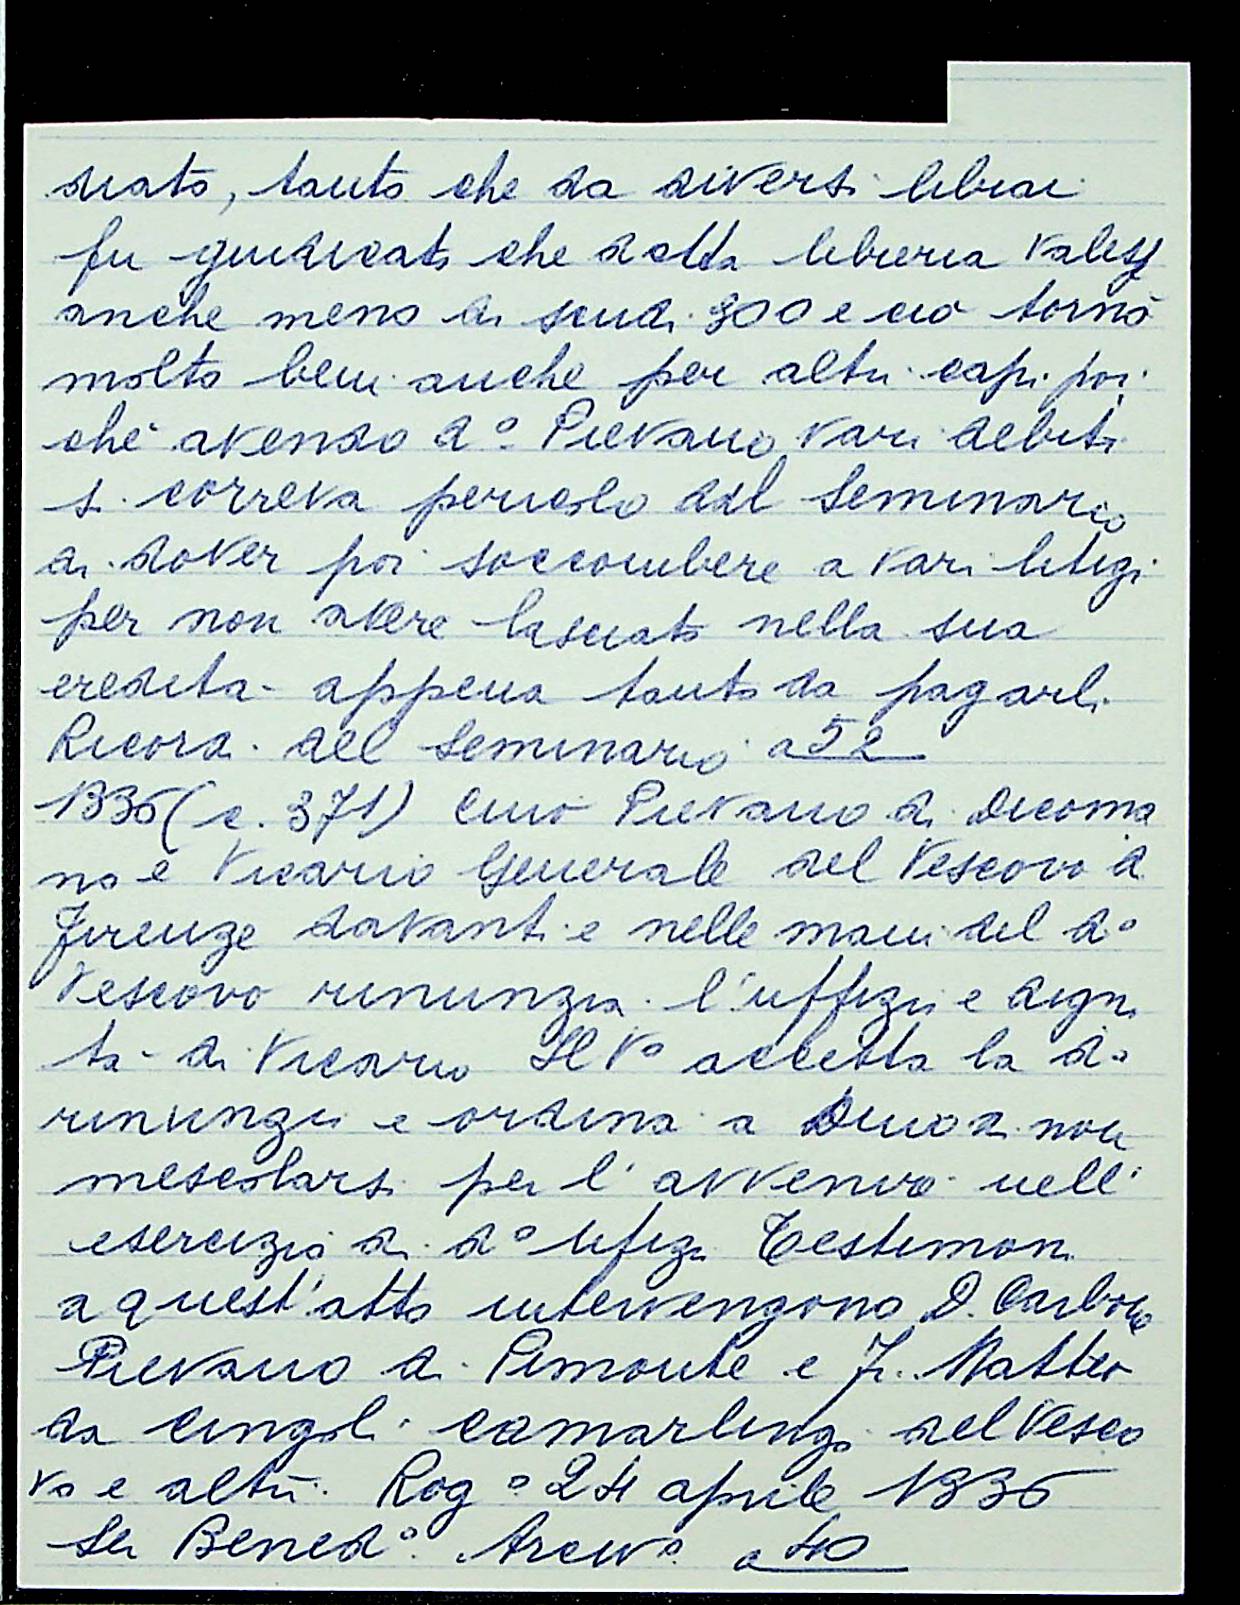 diato, tanto che da diversi librai
fu giudicato che detta libreria valesse
anche meno di scudi 300 e ciò tornò
molto bene anche per altri capi poi
ché avendo dº Pievano vari debiti
si correva pericolo dal Seminario
di dover poi soccombere a vari litigi
per non avere lasciato nella sua
eredità appena tanto da pagarli.
Ricord. del Seminario a 52
1336 (c. 371) Cino Pievano di Dicoma
no e Vicario Generale del Vescovo di
Firenze davanti e nelle mani del dº
Vescovo rinunzia l'uffizio e digni
tà di Vicario Il Vº accetta la dª
rinunzia e ordina a di non
mescolarsi per l'avvenire nell'
esercizio di dº Ufizio Testimoni
a quest'atto intervengono D. Carbone
Pievano di Pimonte e F. Matteo
da Cingoli camarlingo del Vesco
vo e altri. Rogº 24 aprile 1336
Ser Benedº. Arcivº. a 40